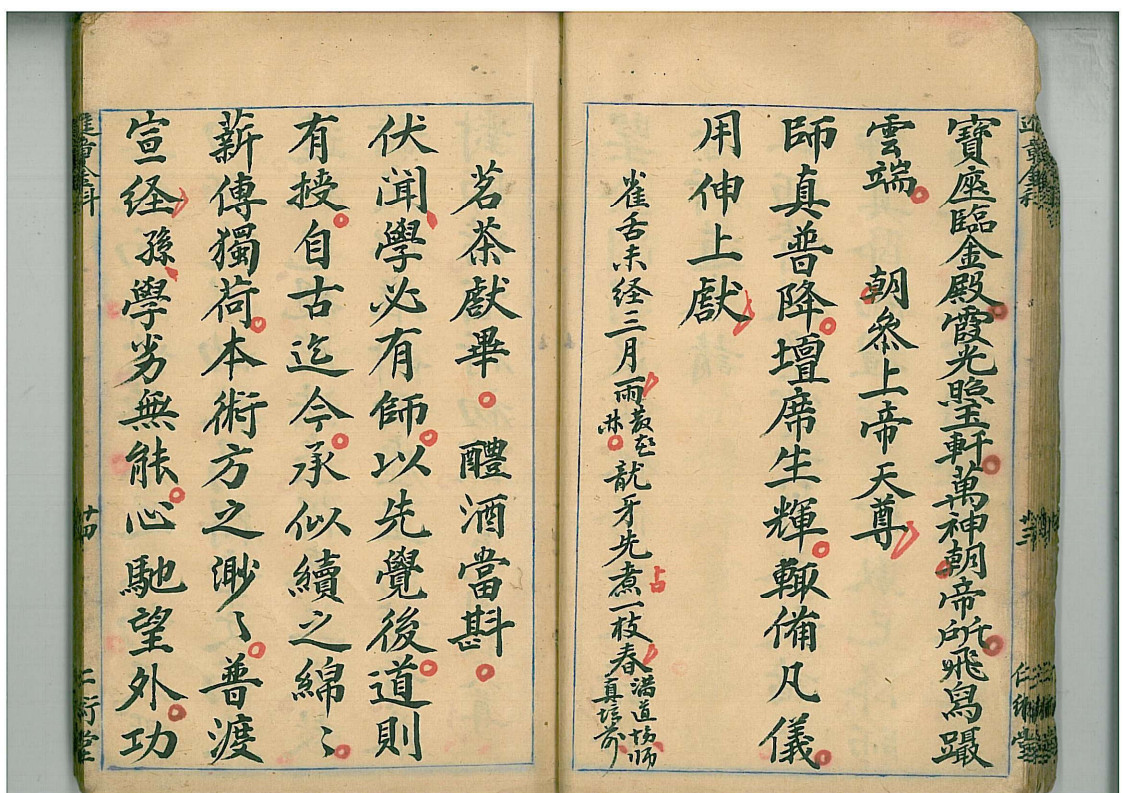 寶座臨金殿霞光照玉軒萬神朝帝所飛舄躡
雲端 朝叅上帝天尊
師真普降壇席生輝輙俻凡儀
用伸上獻
雀舌未经三月雨
龍牙先煮一枝春
满道场师
真培前
茗茶獻畢 醴酒當斟
伏闻學必有師以先覺後道則
有授自古迄今承似續之綿〻
薪傳獨荷本術方之渺〻普渡
宣经孫學劣無能心馳望外功
進章金科
廿四
仁術堂
仁術堂